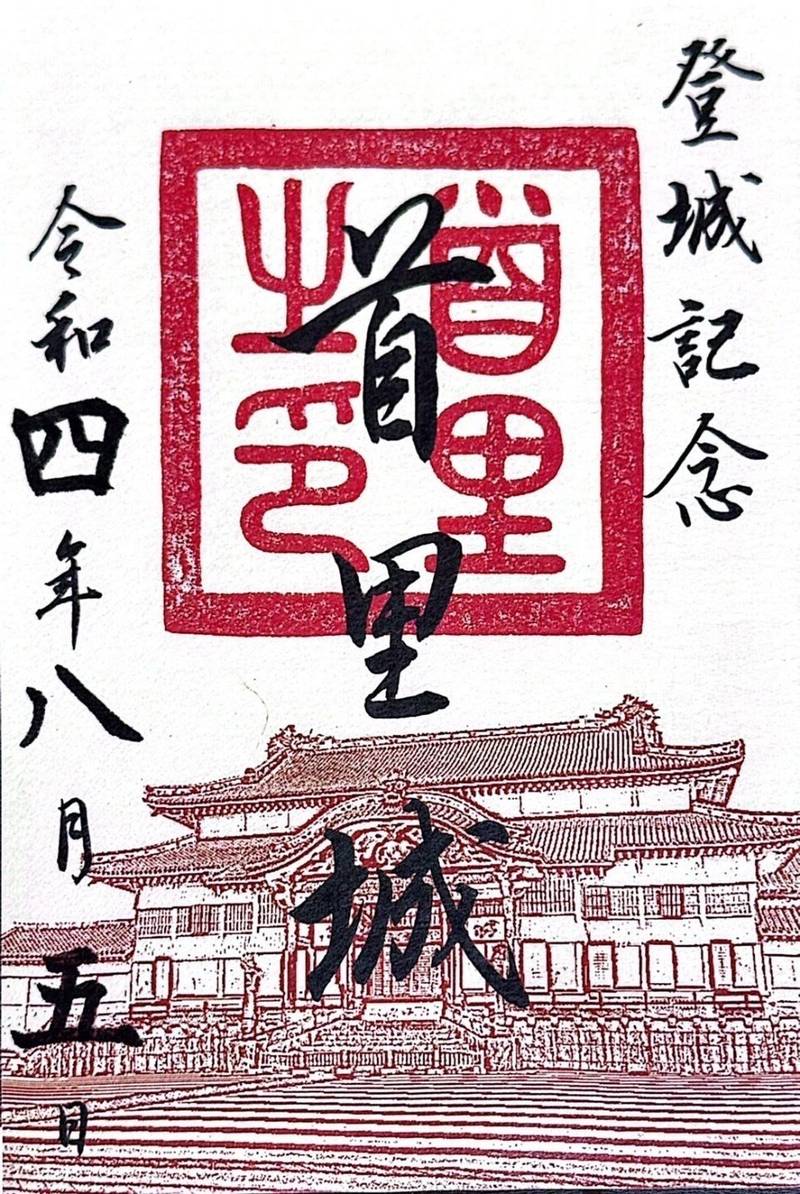 登城記念
首里城
首里
之印
令和四年八月五日